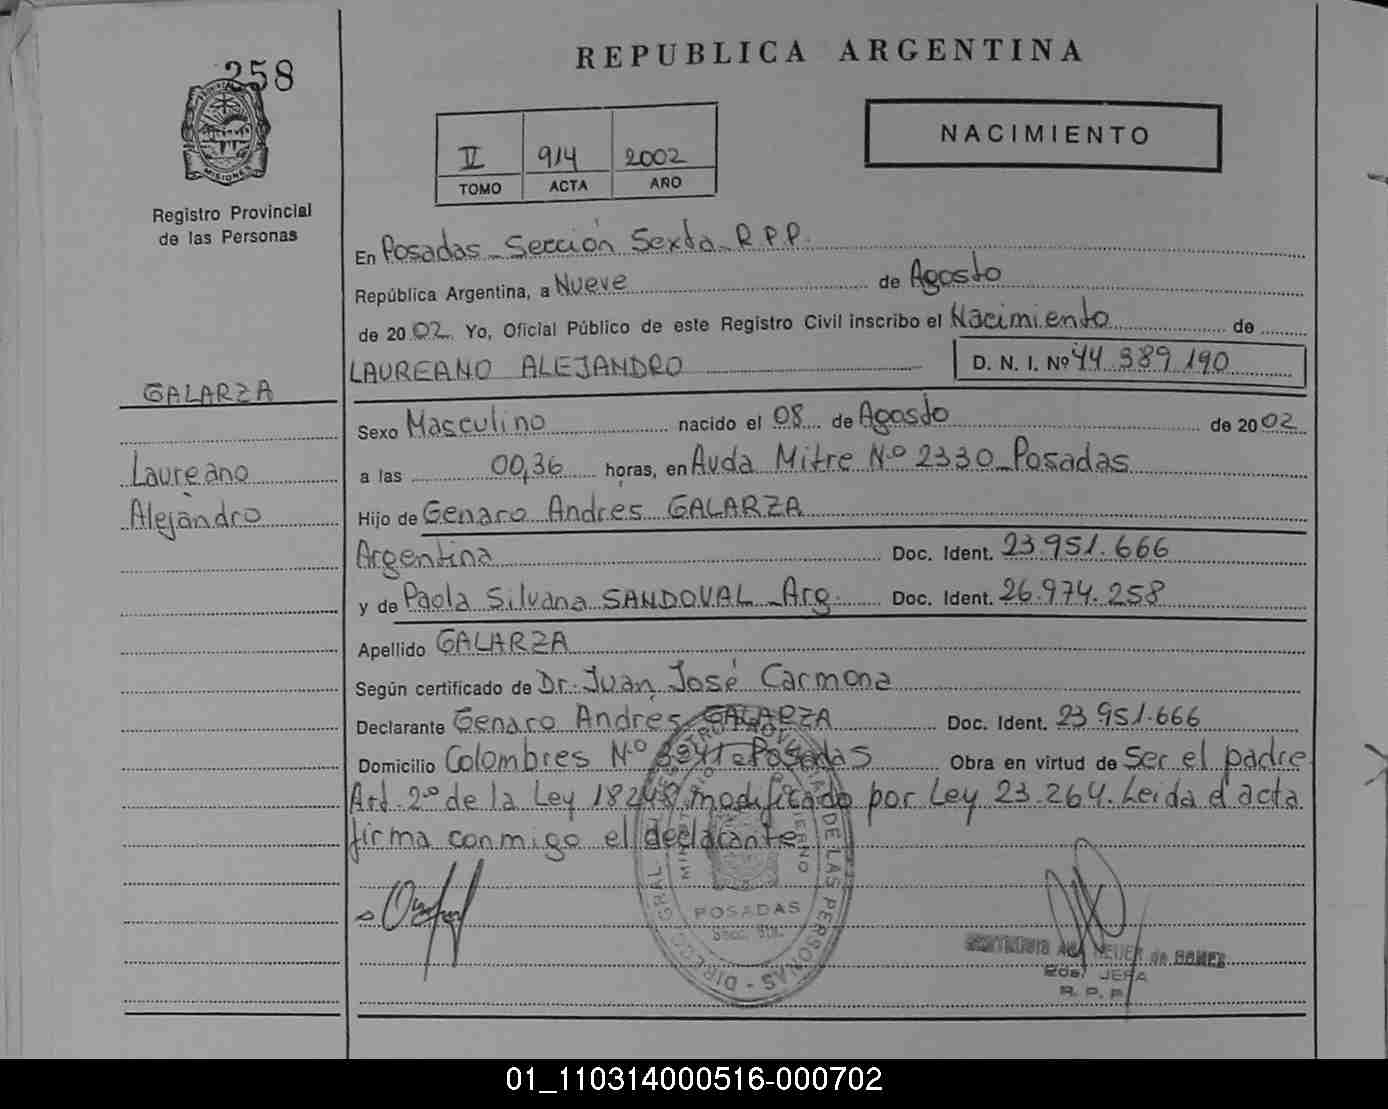 258
REPUBLICA ARGENTINA
NACIMIENTO
II 914 2002
TOMO ACTA AÑO
MISIONES
Registro Provincial
de las Personas
En Posadas - Sección Sexta - R.P.P.
República Argentina, a Nueve de Agosto
de 2002. Yo, Oficial Público de este Registro Civil inscribo el Nacimiento de
LAUREANO ALEJANDRO D. N. I. Nº 44.389.190
GALARZA
Sexo Masculino nacido el 08 de Agosto de 2002
Laureano
a las 00,36 horas, en Avda Mitre Nº 2330 - Posadas
Alejandro
Hijo de Genaro Andrés GALARZA
Argentina Doc. Ident. 23.951.666
y de Paola Silvana SANDOVAL - Arg. Doc. Ident. 26.974.258
Apellido GALARZA
Según certificado de Dr. Juan José Carmona
Declarante Genaro Andrés GALARZA Doc. Ident. 23.951.666
Domicilio Colombres Nº Posadas Obra en virtud de Ser el padre
Art. 2º de la Ley 18248 modificado por Ley 23.264. Leida el acta
firma conmigo el declarante
DIRECC. GRAL. REGISTRO PROVINCIAL DE LAS PERSONAS
POSADAS
JEFA
R. P. P.
01_110314000516-000702